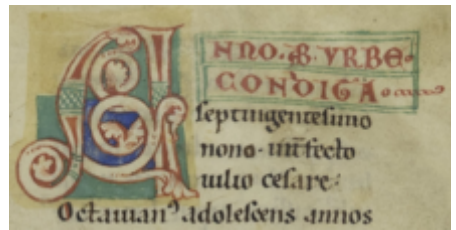 ANNO. AB VRBE.
CONDITA
septingentesimo
nono. int̄fecto
iulio cesare:
Octauian⁹ adolescens annos